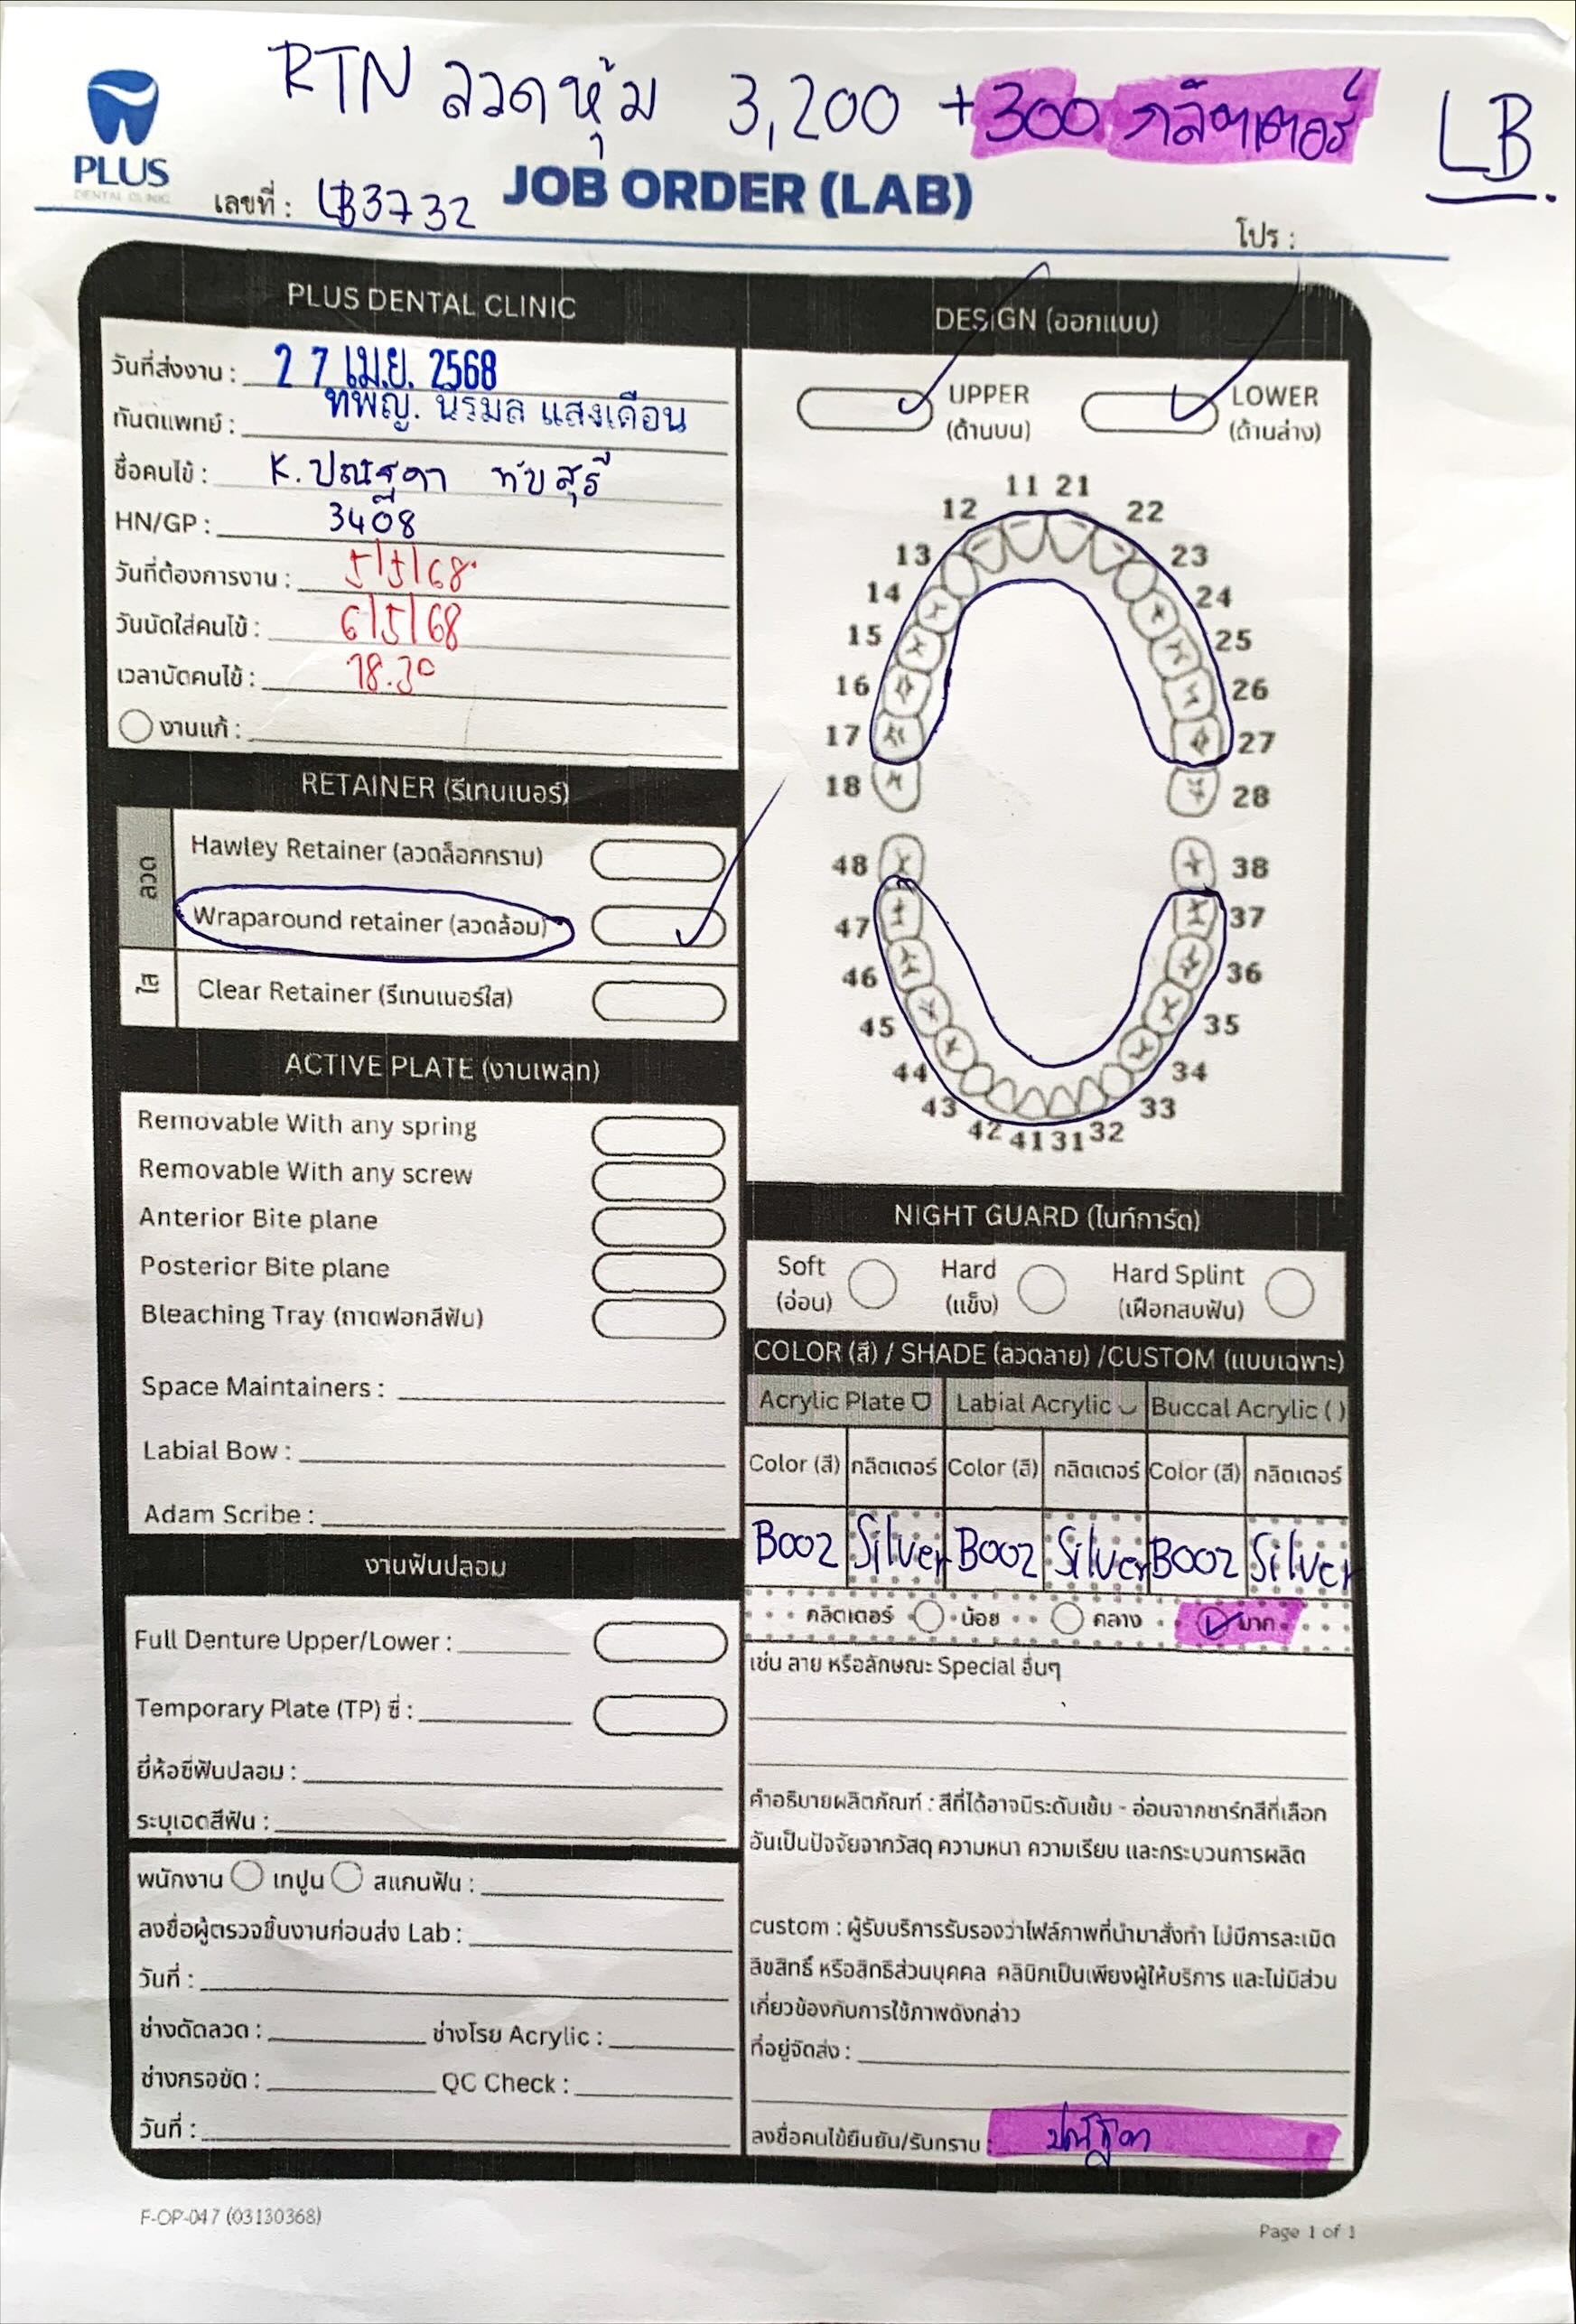 RTN ลวดหุ้ม 3,200 +300 กลิตเตอร์ LB
PLUS
DENTAL CLINIC
เลขที่ : LB3732
JOB ORDER (LAB)
โปร :
PLUS DENTAL CLINIC
วันที่ส่งงาน : 27 เม.ย. 2568
ทันตแพทย์ : ทพญ. นิรมล แสงเดือน
ชื่อคนไข้ : K. ปณัฐดา ทับสุรี
HN/GP : 3408
วันที่ต้องการงาน : 5/5/68
วันนัดใส่คนไข้ : 6/5/68
เวลานัดคนไข้ : 18.30
งานแก้ :
RETAINER (รีเทนเนอร์)
ลวด
Hawley Retainer (ลวดล็อกกราม)
Wraparound retainer (ลวดล้อม)
ใส
Clear Retainer (รีเทนเนอร์ใส)
ACTIVE PLATE (งานเพลท)
Removable With any spring
Removable With any screw
Anterior Bite plane
Posterior Bite plane
Bleaching Tray (ถาดฟอกสีฟัน)
Space Maintainers :
Labial Bow :
Adam Scribe :
งานฟันปลอม
Full Denture Upper/Lower :
Temporary Plate (TP) ซี่ :
ยี่ห้อซี่ฟันปลอม :
ระบุเฉดสีฟัน :
พนักงาน เทปูน สแกนฟัน :
ลงชื่อผู้ตรวจชิ้นงานก่อนส่ง Lab :
วันที่ :
ช่างดัดลวด : ช่างโรย Acrylic :
ช่างกรอขัด : QC Check :
วันที่ :
DESIGN (ออกแบบ)
UPPER LOWER
(ด้านบน) (ด้านล่าง)
11 21
12 22
13 23
14 24
15 25
16 26
17 27
18 28
48 38
47 37
46 36
45 35
44 34
43 33
42 41 31 32
NIGHT GUARD (ไนท์การ์ด)
Soft Hard Hard Splint
(อ่อน) (แข็ง) (เฝือกสบฟัน)
COLOR (สี) / SHADE (ลวดลาย) /CUSTOM (แบบเฉพาะ)
Acrylic Plate Labial Acrylic Buccal Acrylic ( )
Color (สี) กลิตเตอร์ Color (สี) กลิตเตอร์ Color (สี) กลิตเตอร์
B002 Silver B002 Silver B002 Silver
กลิตเตอร์ น้อย กลาง มาก
เช่น ลาย หรือลักษณะ Special อื่นๆ
คำอธิบายผลิตภัณฑ์ : สีที่ได้อาจมีระดับเข้ม - อ่อนจากชาร์ทสีที่เลือก
อันเป็นปัจจัยจากวัสดุ ความหนา ความเรียบ และกระบวนการผลิต
custom : ผู้รับบริการรับรองว่าไฟล์ภาพที่นำมาสั่งทำ ไม่มีการละเมิด
ลิขสิทธิ์ หรือสิทธิส่วนบุคคล คลินิกเป็นเพียงผู้ให้บริการ และไม่มีส่วน
เกี่ยวข้องกับการใช้ภาพดังกล่าว
ที่อยู่จัดส่ง :
ลงชื่อคนไข้ยืนยัน/รับทราบ : ปณัฐดา
F-OP-047 (03130368)
Page 1 of 1